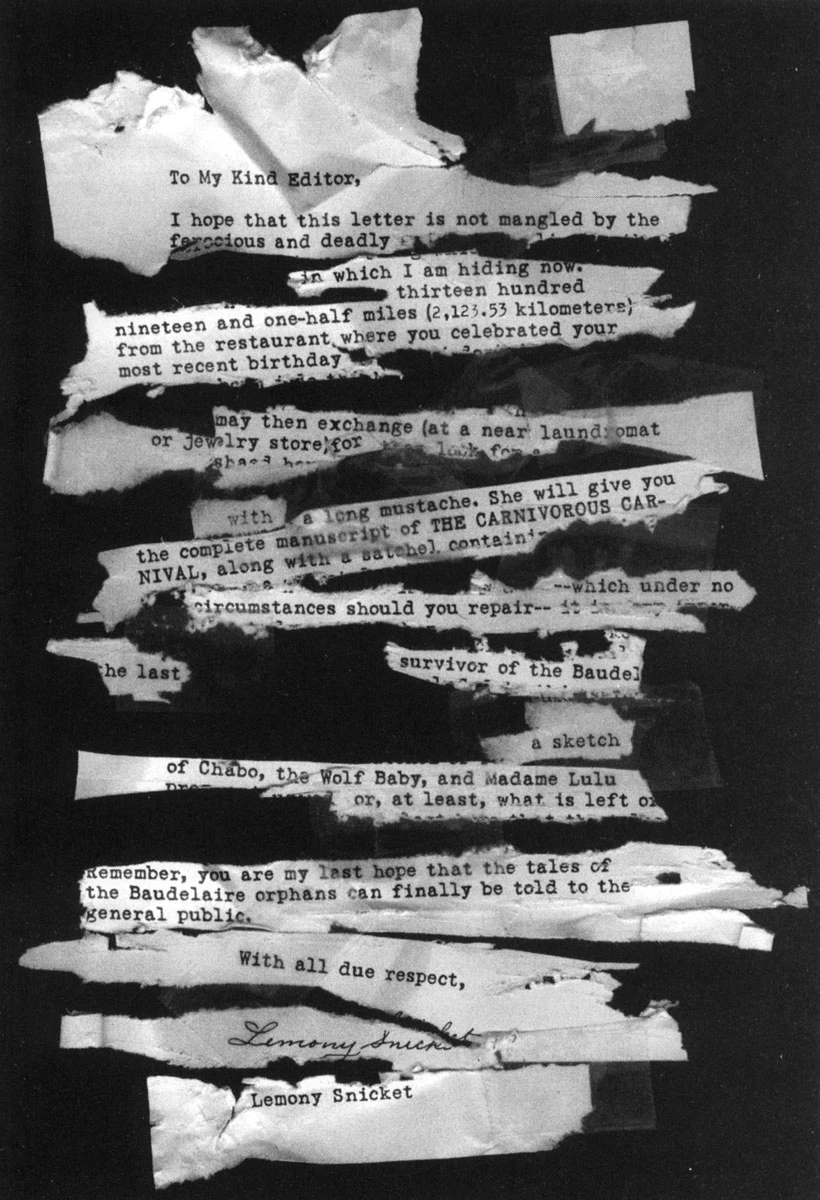 To My Kind Editor,
I hope that this letter is not mangled by the
ferocious and deadly
in which I am hiding now.
thirteen hundred
nineteen and one-half miles (2,123.53 kilometers)
from the restaurant where you celebrated your
most recent birthday
may then exchange (at a near laundromat
or jewelry store) for
with a long mustache. She will give you
the complete manuscript of THE CARNIVOROUS CAR-
NIVAL, along with a satchel containi
--which under no
circumstances should you repair--
he last survivor of the Baudel
a sketch
of Chabo, the Wolf Baby, and Madame Lulu
or, at least, what is left of
Remember, you are my last hope that the tales of
the Baudelaire orphans can finally be told to the
general public.
With all due respect,
Lemony Snicket
Lemony Snicket